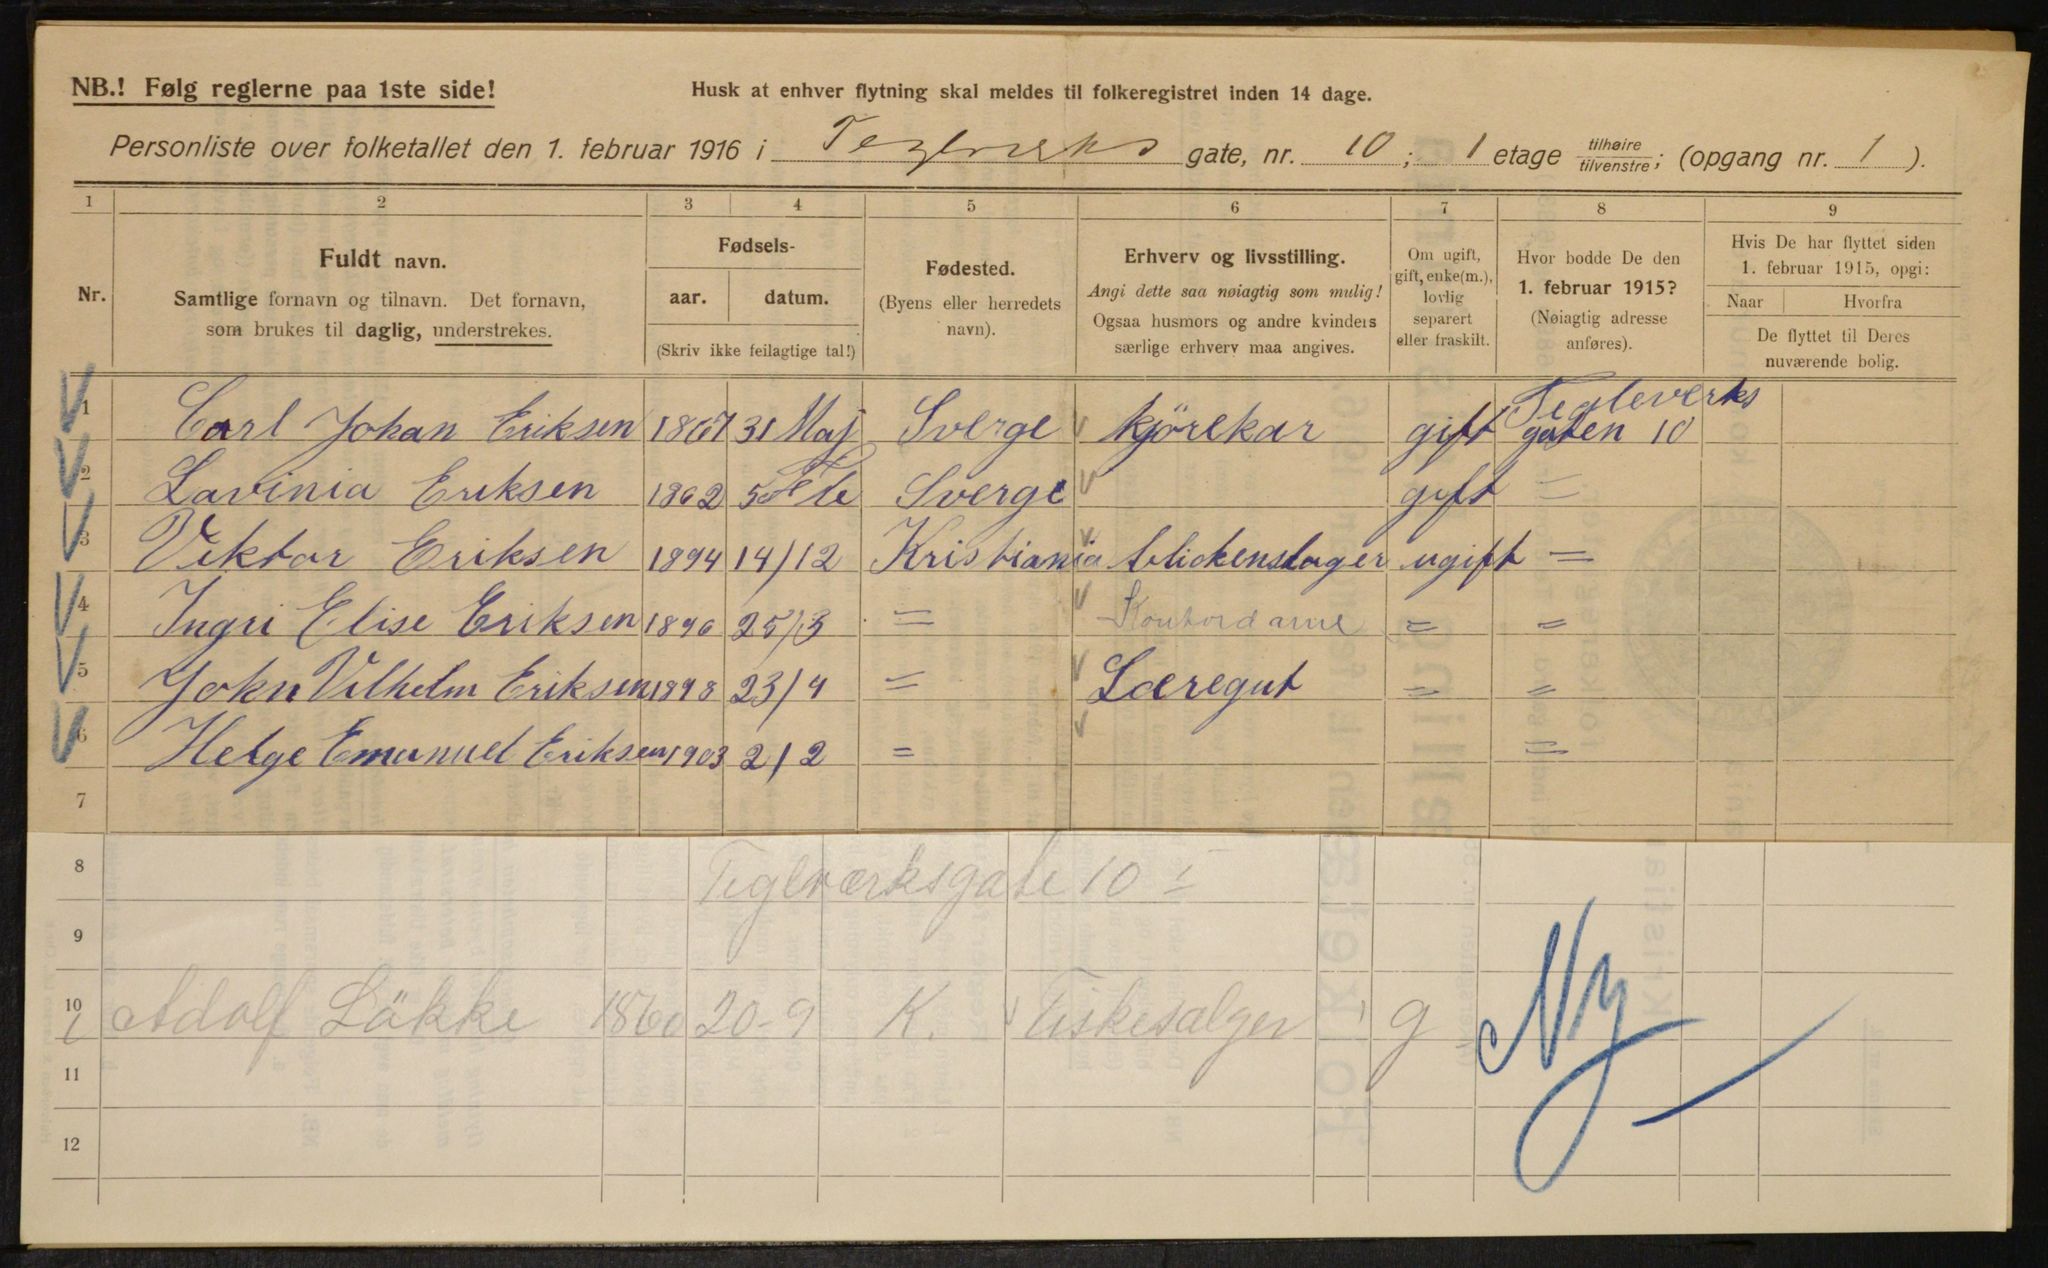 NB.! Følg reglerne paa 1ste side!
Husk at enhver flytning skal meldes til folkeregistret inden 14 dage.
Personliste over folketallet den 1. februar 1916 i Teglverks gate, nr. 10; 1 etage tilhøire/tilvenstre; (opgang nr. 1).
1 2 3 4 5 6 7 8 9
Nr.
Fuldt navn.
Samtlige fornavn og tilnavn. Det fornavn,
som brukes til daglig, understrekes.
Fødsels-
aar. datum.
(Skriv ikke feilagtige tal!)
Fødested.
(Byens eller herredets
navn).
Erhverv og livsstilling.
Angi dette saa nøiagtig som mulig!
Ogsaa husmors og andre kvinders
særlige erhverv maa angives.
Om ugift,
gift, enke(m.),
lovlig
separert
eller fraskilt.
Hvor bodde De den
1. februar 1915?
(Nøiagtig adresse
anføres).
Hvis De har flyttet siden
1. februar 1915, opgi:
Naar Hvorfra
De flyttet til Deres
nuværende bolig.
1 Carl Johan Eriksen 1867 31 Maj Sverge kjörekar gift Tegleverks gaten 10
2 Lavinia Eriksen 1862 5 Sverge gift =
3 Viktor Eriksen 1894 14/12 Kristiania blickenslager ugift =
4 Ingri Elise Eriksen 1896 25/3 = Kontordame = =
5 John Vilhelm Eriksen 1898 23/4 = Læregut = =
6 Helge Emanuel Eriksen 1903 2/2 = =
7
8 Teglværksgate 10 I
9
10 1 Adolf Løkke 1860 20-9 K. Fiskesælger g Ny
11
12